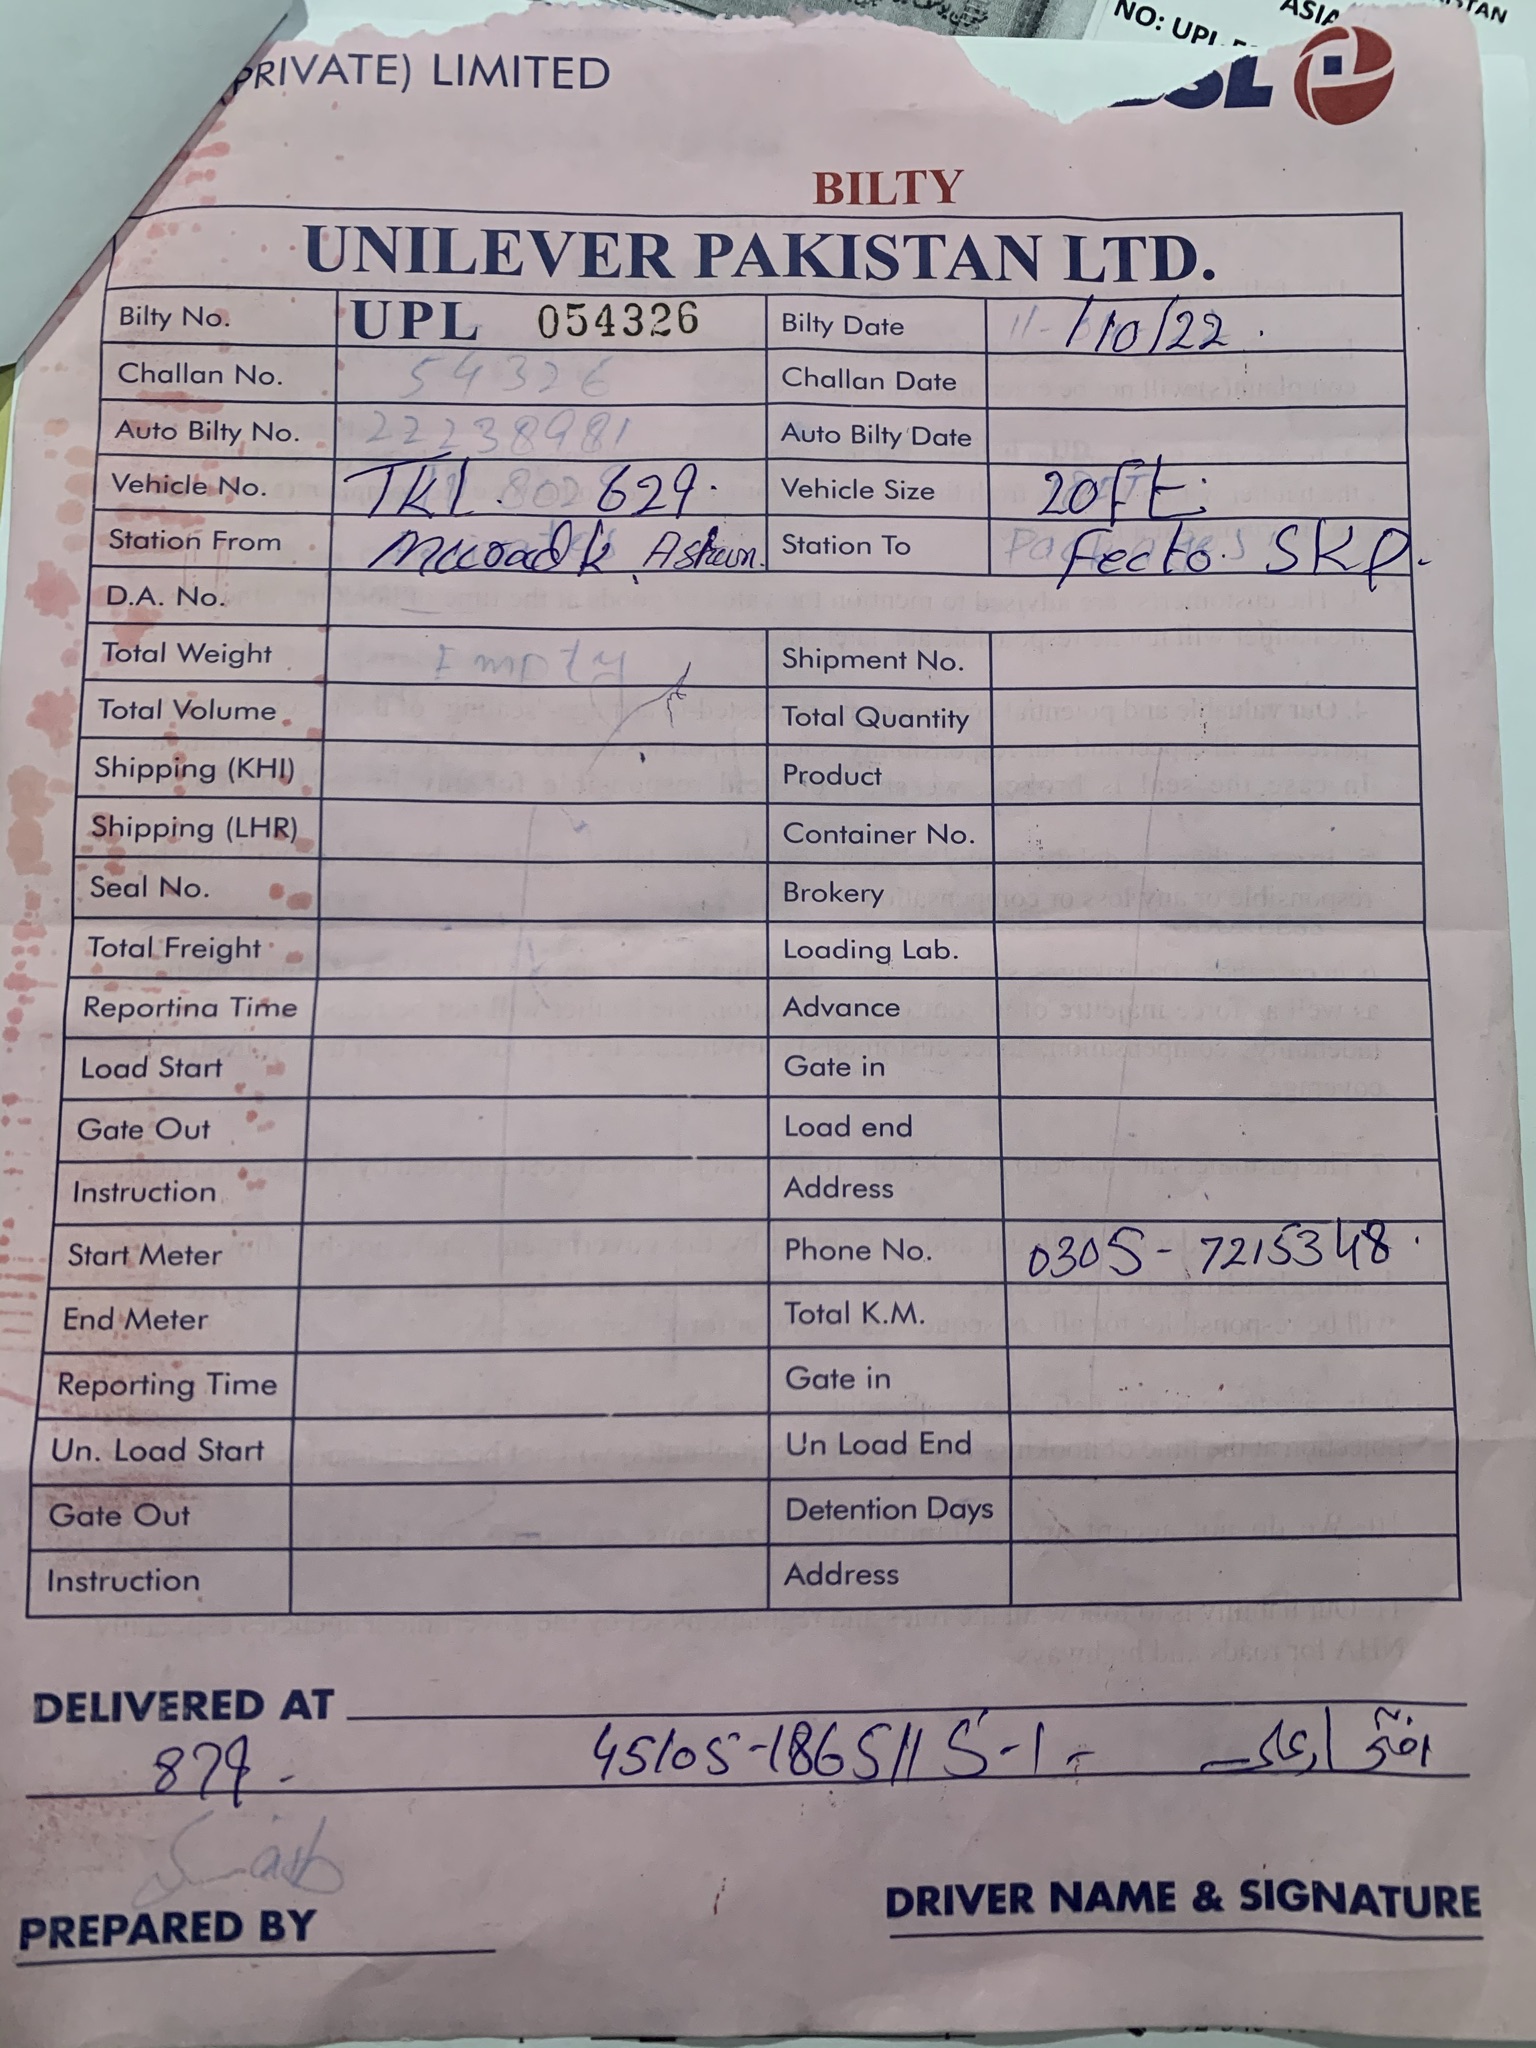 NO: UPL
(PRIVATE) LIMITED
BILTY
UNILEVER PAKISTAN LTD.
Bilty No. UPL 054326 Bilty Date 11- /10/22.
Challan No. 54326 Challan Date
Auto Bilty No. 22238981 Auto Bilty Date
Vehicle No. TKL 629. Vehicle Size 20Ft.
Station From Station To Fecto. SKP.
D.A. No.
Total Weight Empty Shipment No.
Total Volume Total Quantity
Shipping (KHI) Product
Shipping (LHR) Container No.
Seal No. Brokery
Total Freight Loading Lab.
Reporting Time Advance
Load Start Gate in
Gate Out Load end
Instruction Address
Start Meter Phone No. 0305-7215348.
End Meter Total K.M.
Reporting Time Gate in
Un. Load Start Un Load End
Gate Out Detention Days
Instruction Address
DELIVERED AT
879- 45105-1865115-1-
PREPARED BY
DRIVER NAME & SIGNATURE